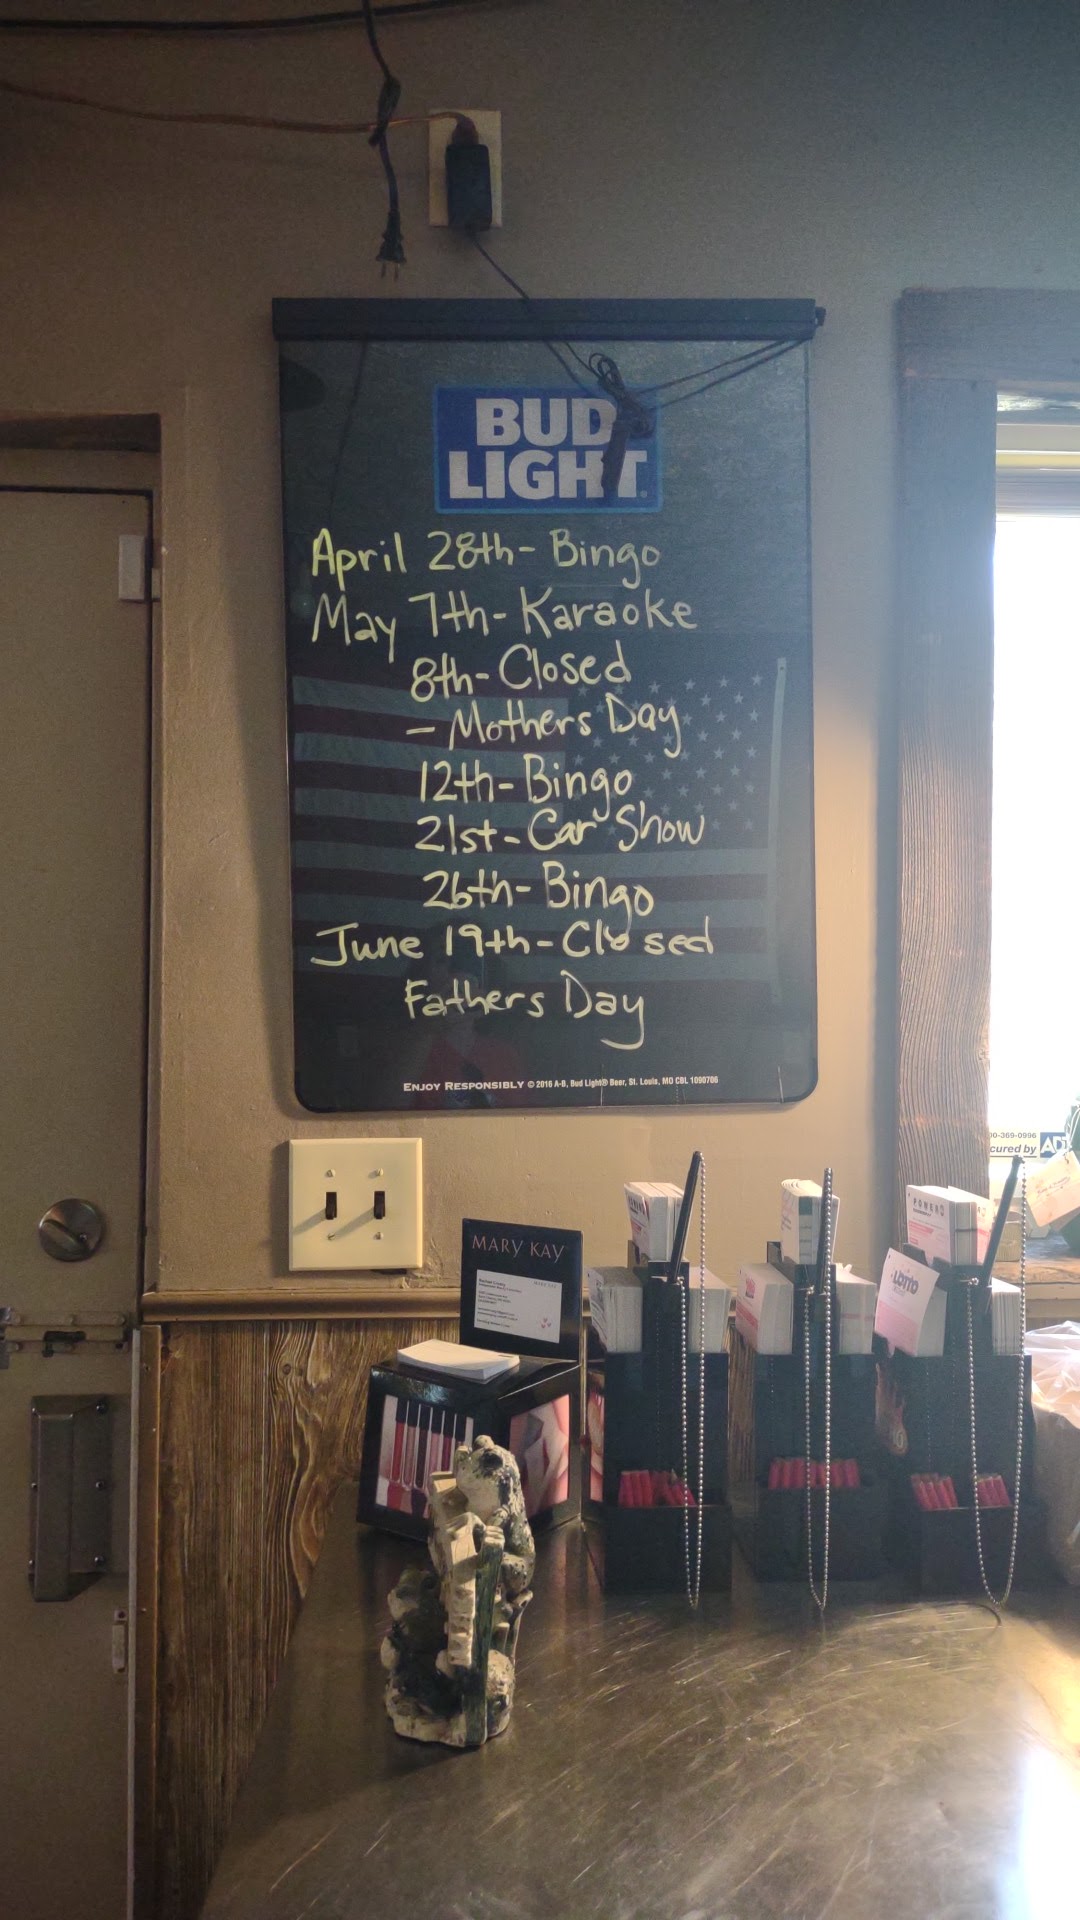 BUD
LIGHT
April 28th- Bingo
May 7th- Karaoke
8th- Closed
- Mothers Day
12th- Bingo
21st- Car Show
26th- Bingo
June 19th- Closed
Fathers Day
ENJOY RESPONSIBLY © 2016 A-B, Bud Light® Beer, St. Louis, MO CBL 1090706
00-369-0996
cured by ADT
MARY KAY
POWER
LOTTO